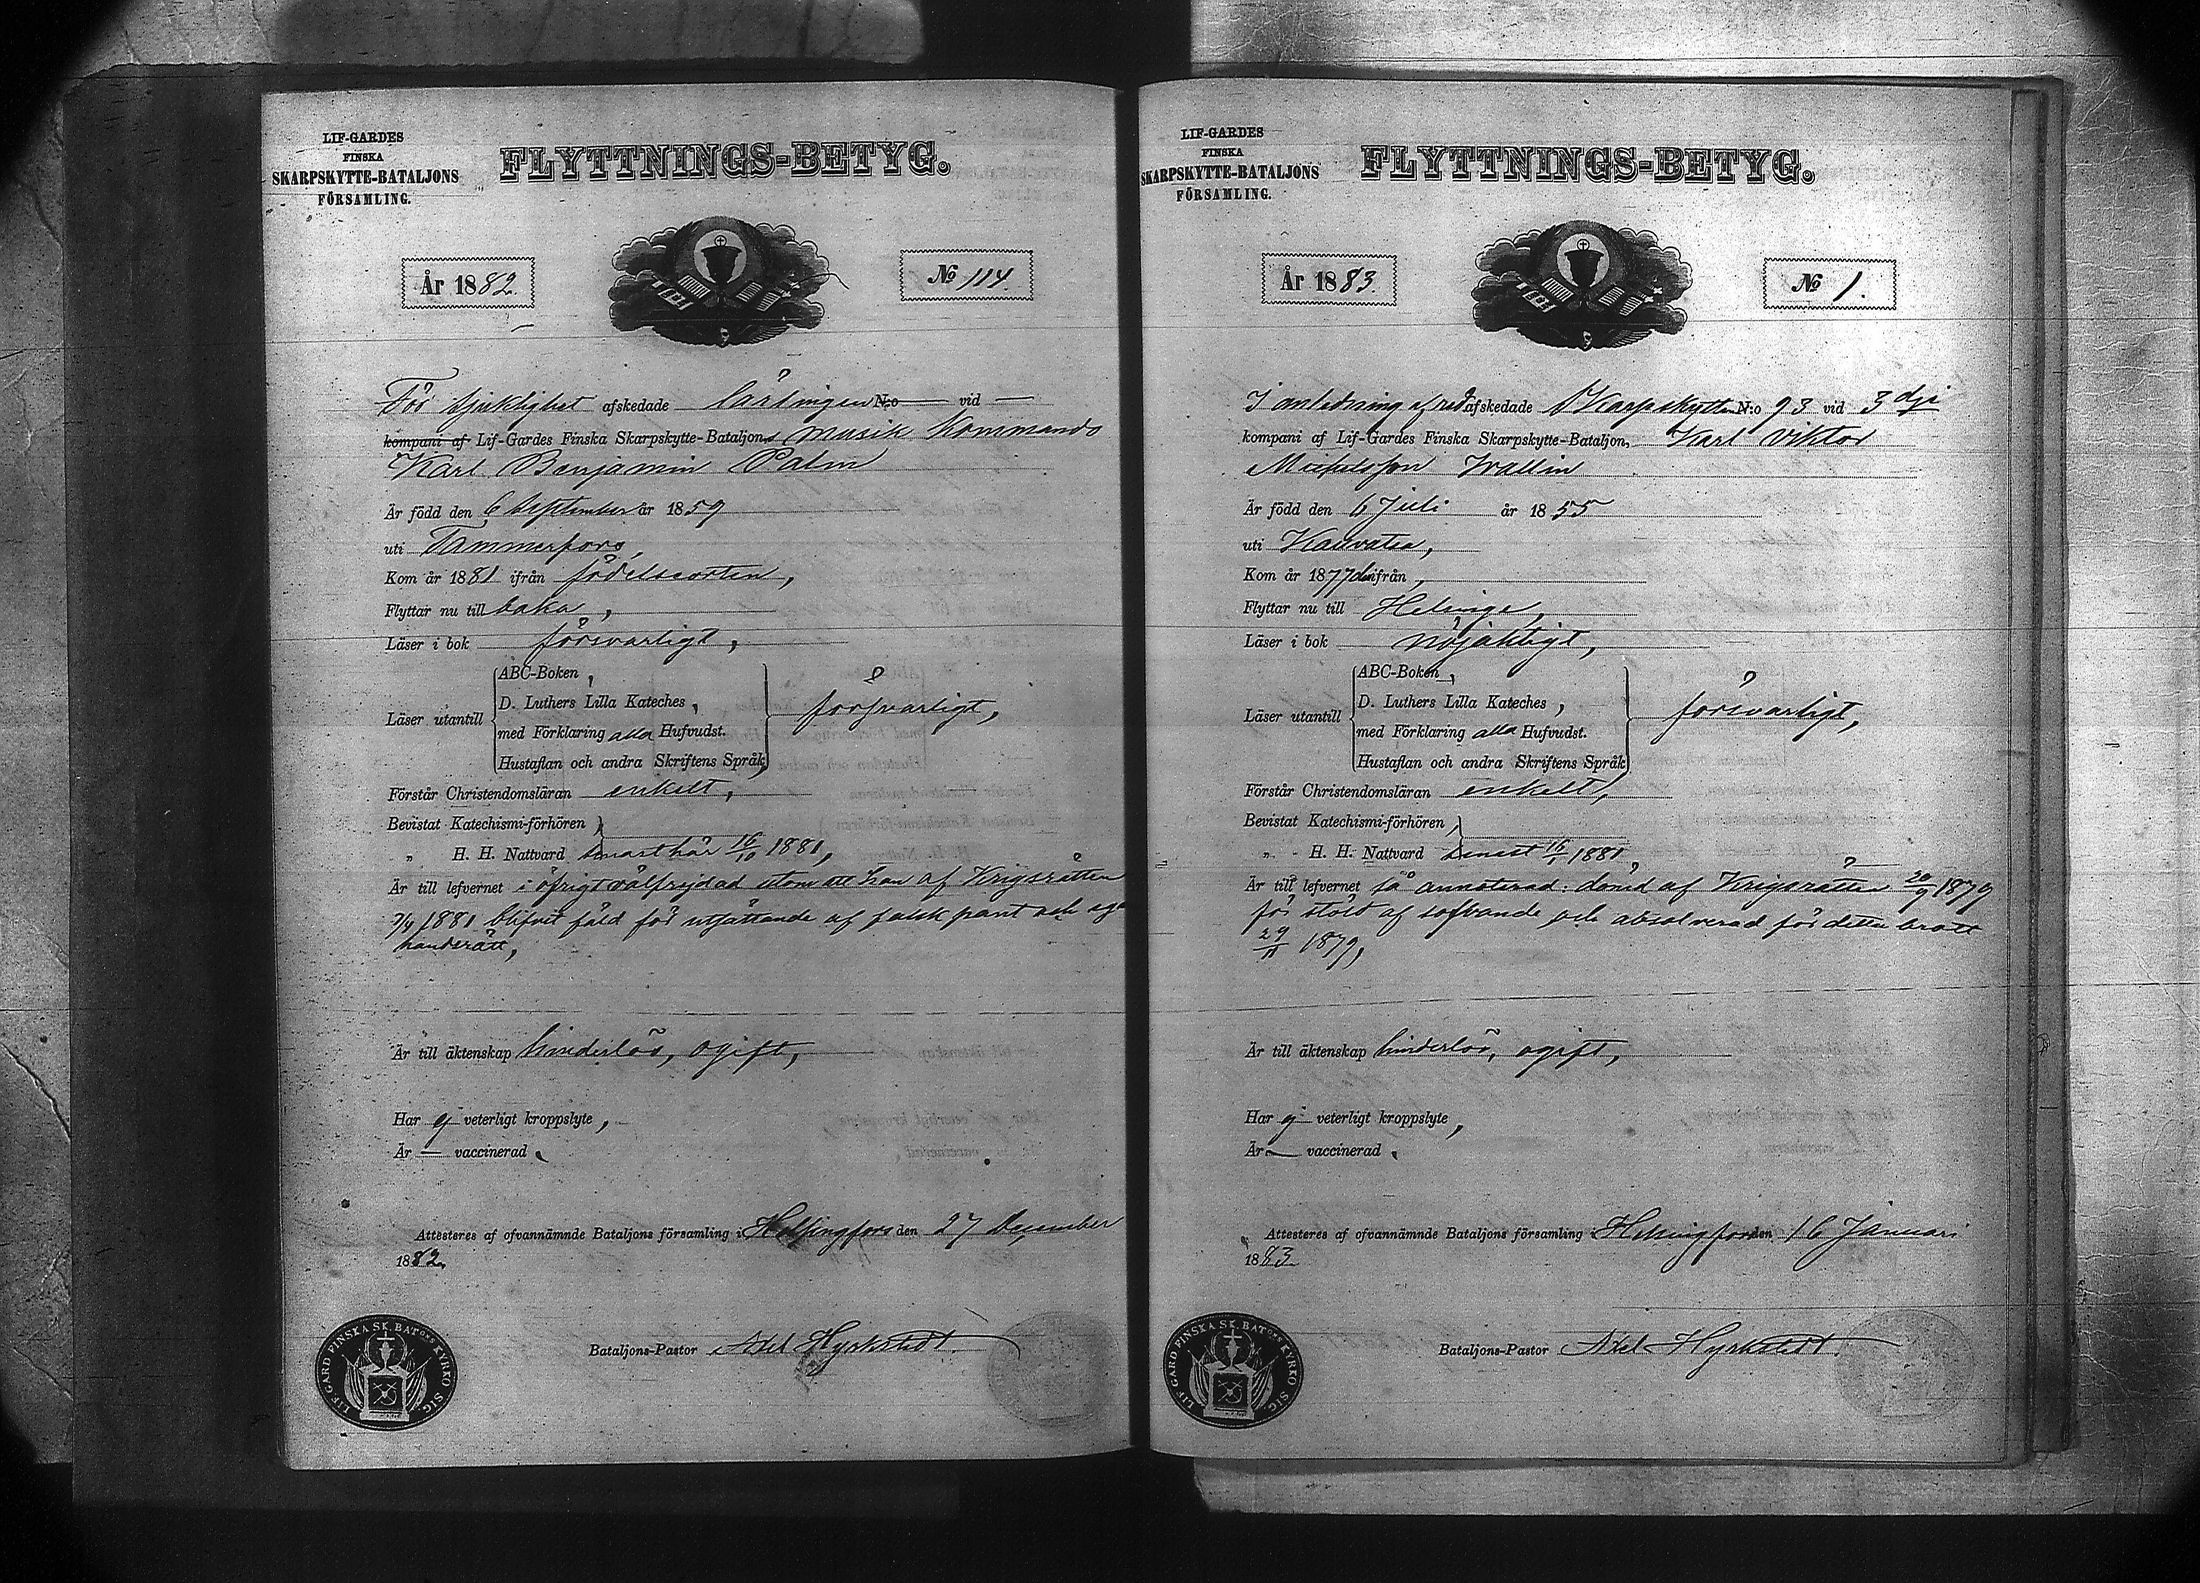 LIF-GARDES
FINSKA
SKARPSKYTTE-BATALJONS
FÖRSAMLING.
FLYTTNINGS-BETYG.
År 1882.
No 114
För sjuklighet afskedade lärlingen N:o — vid —
kompani af Lif-Gardes Finska Skarpskytte-Bataljons Musik Kommando
Karl Benjamin Palm
Är född den 6 September år 1859
uti Tammerfors,
Kom år 1881 ifrån födelseorten,
Flyttar nu till baka,
Läser i bok försvarligt,
Läser utantill
ABC-Boken,
D. Luthers Lilla Kateches,
med Förklaring alla Hufvudst.
Hustaflan och andra Skriftens Språk,
försvarligt,
Förstår Christendomsläran enkelt,
Bevistat Katechismi-förhören,
„ H. H. Nattvard senast här 16/10 1881,
Är till lefvernet i öfrigt välfrejdad utom att han af Krigsrätten
1881 blifvit fäld för utsättande af falsk pant och
handsrätt,
Är till äktenskap hinderlös, ogift,
Har ej veterligt kroppslyte,
Är — vaccinerad.
Attesteras af ofvannämnde Bataljons församling i Helsingfors den 27 December
1882.
Bataljons-Pastor Axel Hyrkstedt.
LIF GARD FINSKA SK. BATONS KYRKO SIG.
LIF-GARDES
FINSKA
SKARPSKYTTE-BATALJONS
FÖRSAMLING.
FLYTTNINGS-BETYG.
År 1883.
No 1.
I anledning af red afskedade Skarpskytten N:o 93 vid 3dje
kompani af Lif-Gardes Finska Skarpskytte-Bataljon, Karl Viktor
Mickelsson Wallin
Är född den 6 Juli år 1855
uti Kauvatsa,
Kom år 1877 derifrån,
Flyttar nu till Helsinge,
Läser i bok nöjaktigt,
Läser utantill
ABC-Boken,
D. Luthers Lilla Kateches,
med Förklaring alla Hufvudst.
Hustaflan och andra Skriftens Språk
försvarligt,
Förstår Christendomsläran enkelt,
Bevistat Katechismi-förhören,
„ H. H. Nattvard senast 16/1 1881,
Är till lefvernet så annoterad: dömd af Krigsrätten 20/9 1879
för stöld af sofvande och absolverad för detta brott
29/11 1879,
Är till äktenskap hinderlös, ogift,
Har ej veterligt kroppslyte,
Är — vaccinerad.
Attesteras af ofvannämnde Bataljons församling i Helsingfors den 16 Januari
1883.
Bataljons-Pastor Axel Hyrkstedt.
LIF GARD FINSKA SK. BATONS KYRKO SIG.